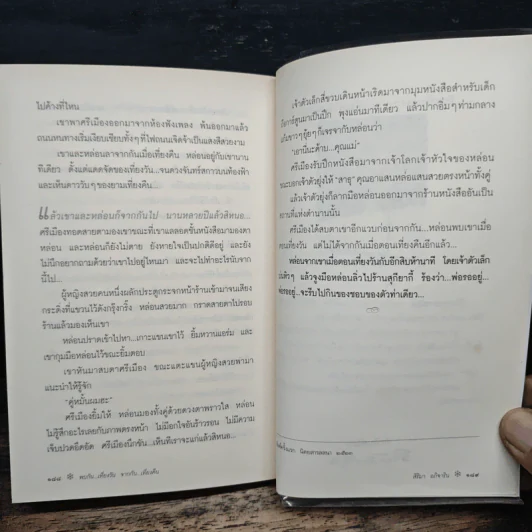 ไปค้างที่ไหน
เขาพาศรีเมืองออกมาจากห้องฟังเพลง พ้นออกมาแล้ว
ถนนหนทางเริ่มเงียบเชียบทั้งๆ ที่ไฟถนนเจิดจ้าเป็นแสงสีสวยงาม
เขาและหล่อนลาจากกันเมื่อเที่ยงคืน หล่อนอยู่กับเขานาน
ทีเดียว ตั้งแต่แดดจัดของเที่ยงวัน ..จนดวงจันทร์สกาวบนท้องฟ้า
และเห็นดาววับๆ ของยามเที่ยงคืน
แล้วเขาและหล่อนก็จากกันไป นานหลายปีแล้วสิหนอ...
ศรีเมืองทอดสายตามองเขาขณะที่เขาแลลอดชั้นหนังสือมามองตา
หล่อน และหล่อนก็ยังไม่ตาย ยังหายใจเป็นปกติดีอยู่ และยัง
ไม่นึกอยากถามด้วยว่าเขาไปอยู่ไหนมา และจะไปทำอะไรนับจาก
นี้ไป...
ผู้หญิงสวยคนหนึ่งผลักประตูกระจกหน้าร้านเข้ามาจนเสียง
กระดิ่งที่แขวนไว้ดังกรุ๊งกริ๊ง หล่อนสวยมาก กวาดสายตาไปรอบ
ร้านแล้วมองเห็นเขา
หล่อนปราดเข้าไปหา...เกาะแขนเขาไว้ ยิ้มหวานแฉ่ม และ
เขากุมมือหล่อนไว้ขณะยิ้มตอบ
เขาหันมาสบตาศรีเมือง ขณะแตะแขนผู้หญิงสวยพามา
แนะนำให้รู้จัก
"คู่หมั้นผมฮะ"
ศรีเมืองยิ้มให้ หล่อนมองทั้งคู่ด้วยดวงตาพราวใส หล่อน
ไม่รู้สึกอะไรเลยกับภาพตรงหน้า ไม่มีอกใจอันร้าวรอน ไม่มีความ
เจ็บปวดอึดอัด ศรีเมืองนึกขัน...เห็นทีเราจะแก่แล้วสิหนอ...
๒๘๘ พบกัน..เที่ยงวัน จากกัน..เที่ยงคืน
เจ้าตัวเล็กสี่ขวบเดินหน้าเริ่ดมาจากมุมหนังสือสำหรับเด็ก
พุงแอ่นมาทีเดียว แล้วปากอิ่มๆ ท่ามกลาง
ก็เจรจากับหล่อนว่า
"เอานี่นะด้าบ...คุณแม่"
ศรีเมืองรับปึกหนังสือมาจากเจ้าโลกเจ้าหัวใจของหล่อน
ขณะบอกเจ้าตัวยุ่งให้ "สาธุ" คุณอาแสนหล่อแสนสวยตรงหน้าทั้งคู่
แล้วเจ้าตัวยุ่งก็ลากมือหล่อนออกมาจากร้านหนังสืออันเป็น
สถานที่แห่งตำนานนั้น
ศรีเมืองได้สบตาเขาอีกแวบก่อนจากกัน...หล่อนพบเขาเมื่อ
ตอนเที่ยงวัน แต่ไม่ได้จากกันเมื่อตอนเที่ยงคืนอีกแล้ว...
หล่อนจากเขาเมื่อตอนเที่ยงวันกับอีกสิบห้านาที โดยเจ้าตัวเล็ก
แล้วจูงมือหล่อนลิ่วไปร้านสุกียากี้ ร้องว่า... พ่อรออยู่...
พ่อรออยู่...จะรีบไปกินของชอบของตัวท่าเดียว...
นิตยสารลลนา ๒๕๒๓
๒๘๙